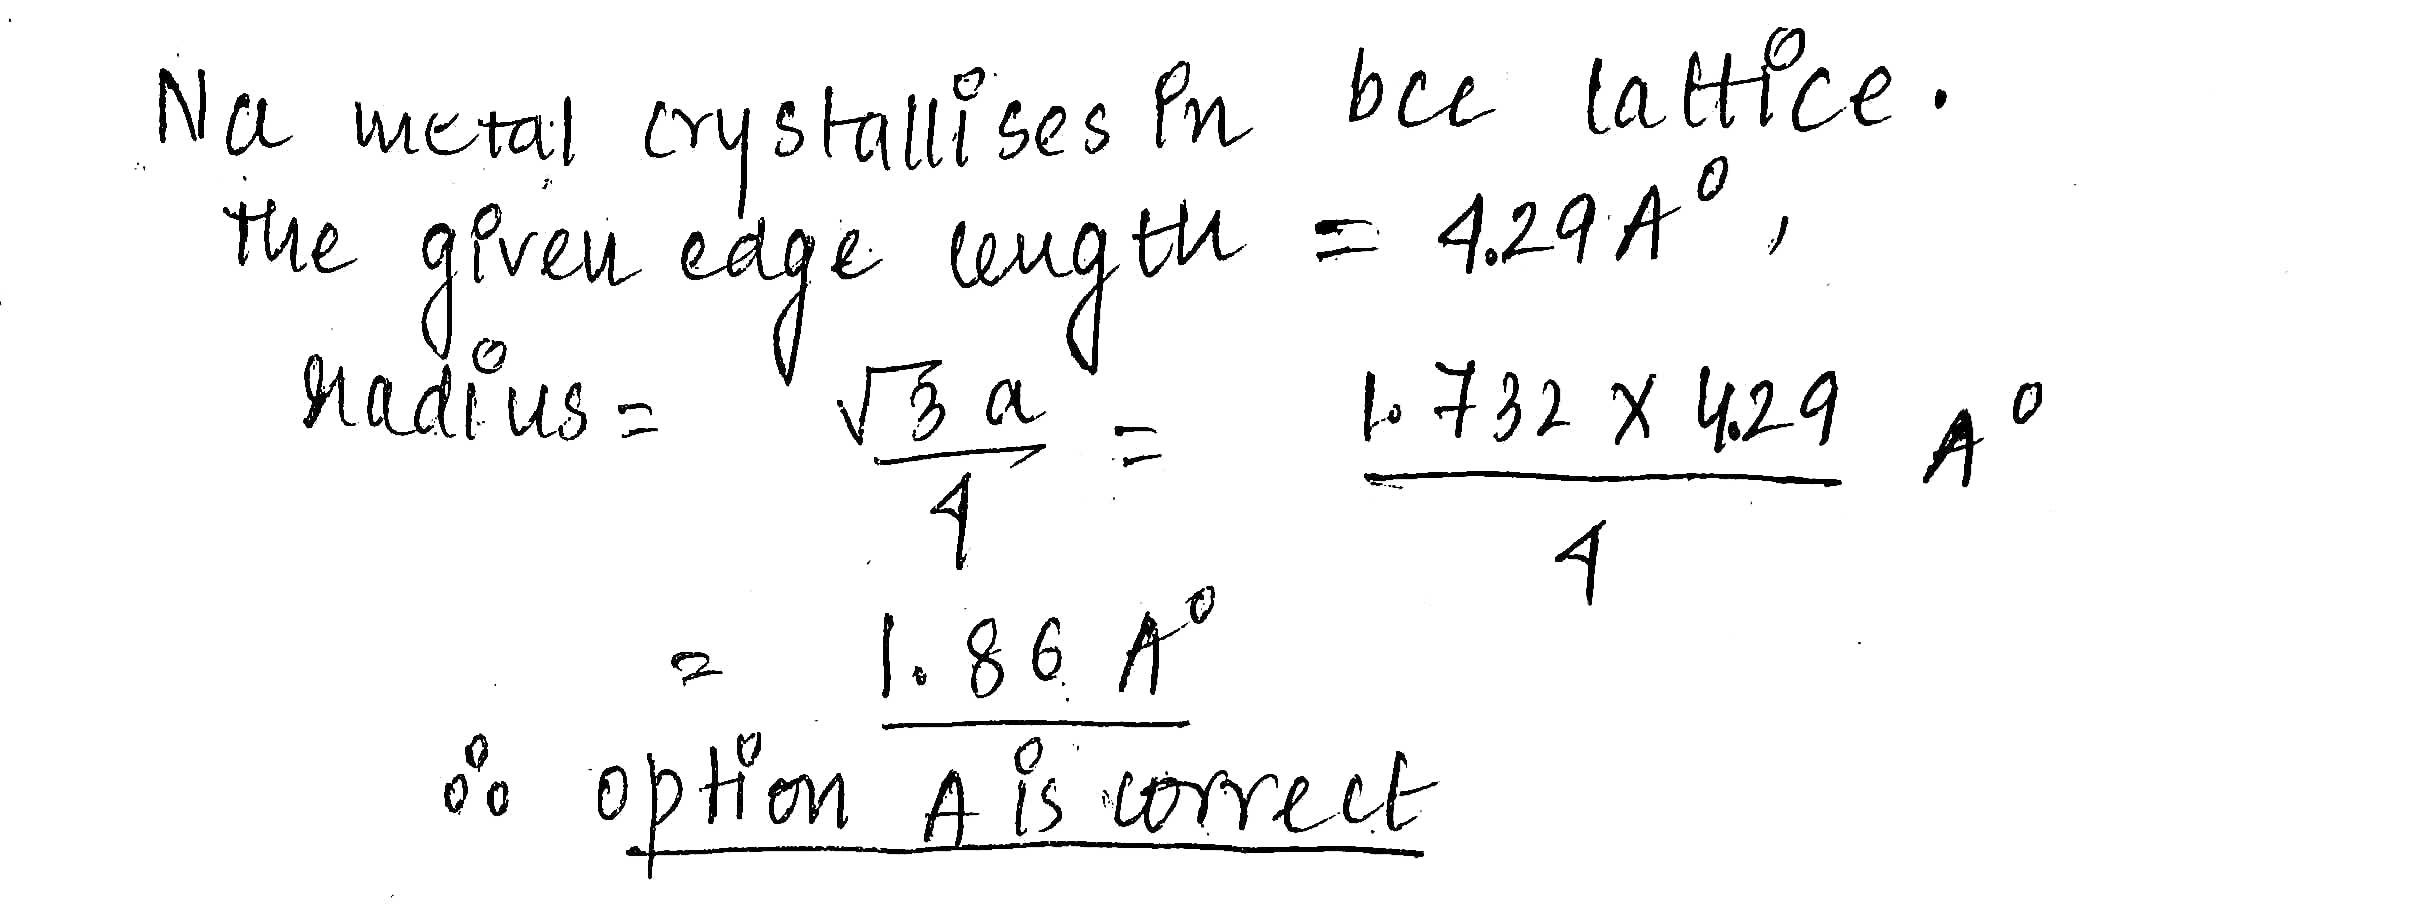 Na metal crystallises in bcc lattice.
the given edge length = 4.29 A°,
radius = √3 a / 4 = 1.732 x 4.29 / 4 A°
= 1.86 A°
∴ option A is correct